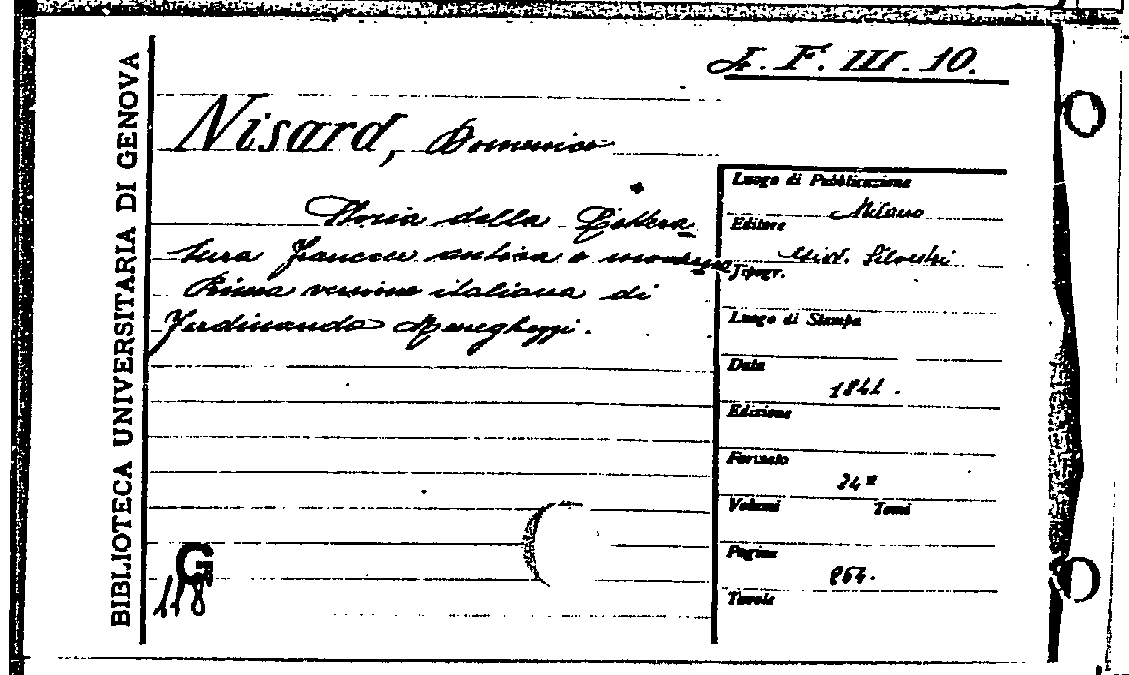 BIBLIOTECA UNIVERSITARIA DI GENOVA
F. III. 10.
Nisard, Domenico
Storia della Lettera
tura francese antica e moderna
Prima versione italiana di
Ferdinando Meneghezzi.
Luogo di Pubblicazione
Milano
Editore
Giov. Silvestri
Tipogr.
Luogo di Stampa
Data
Edizione
Formato
24°
Volumi Tomi
Pagine
Tavole
G
118